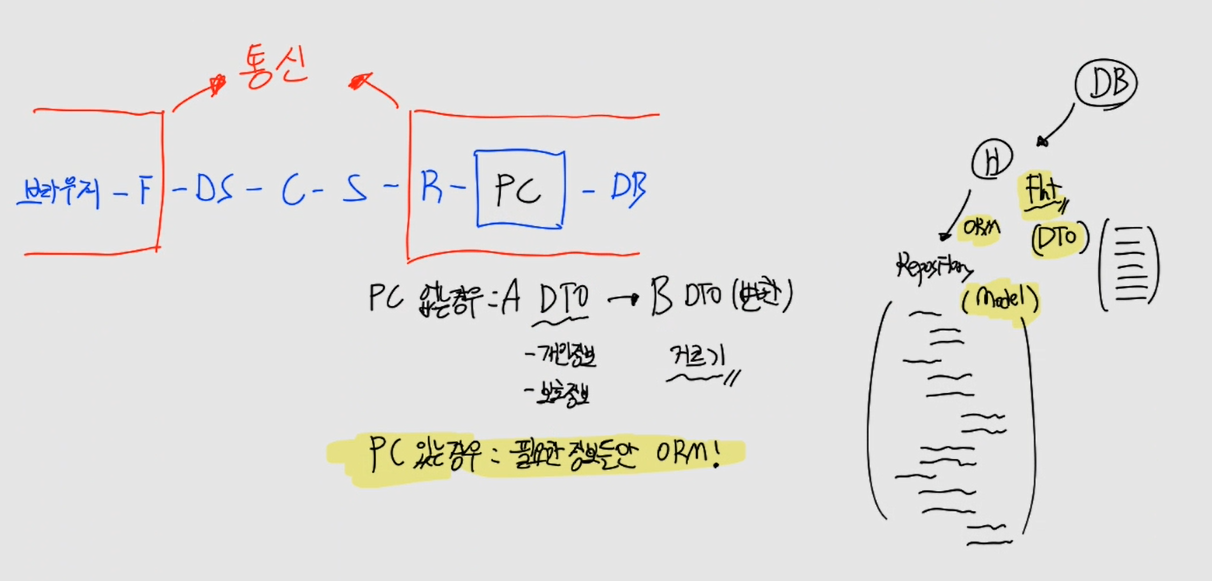 통신
브라우저 - F - DS - C - S - R - PC - DB
PC 없는경우 = A DTO → B DTO (변환)
- 개인정보
거르기
- 보호정보
PC 있는경우 = 필요한 정보들만 ORM!
DB
H
ORM
(DTO)
Repository
(Model)